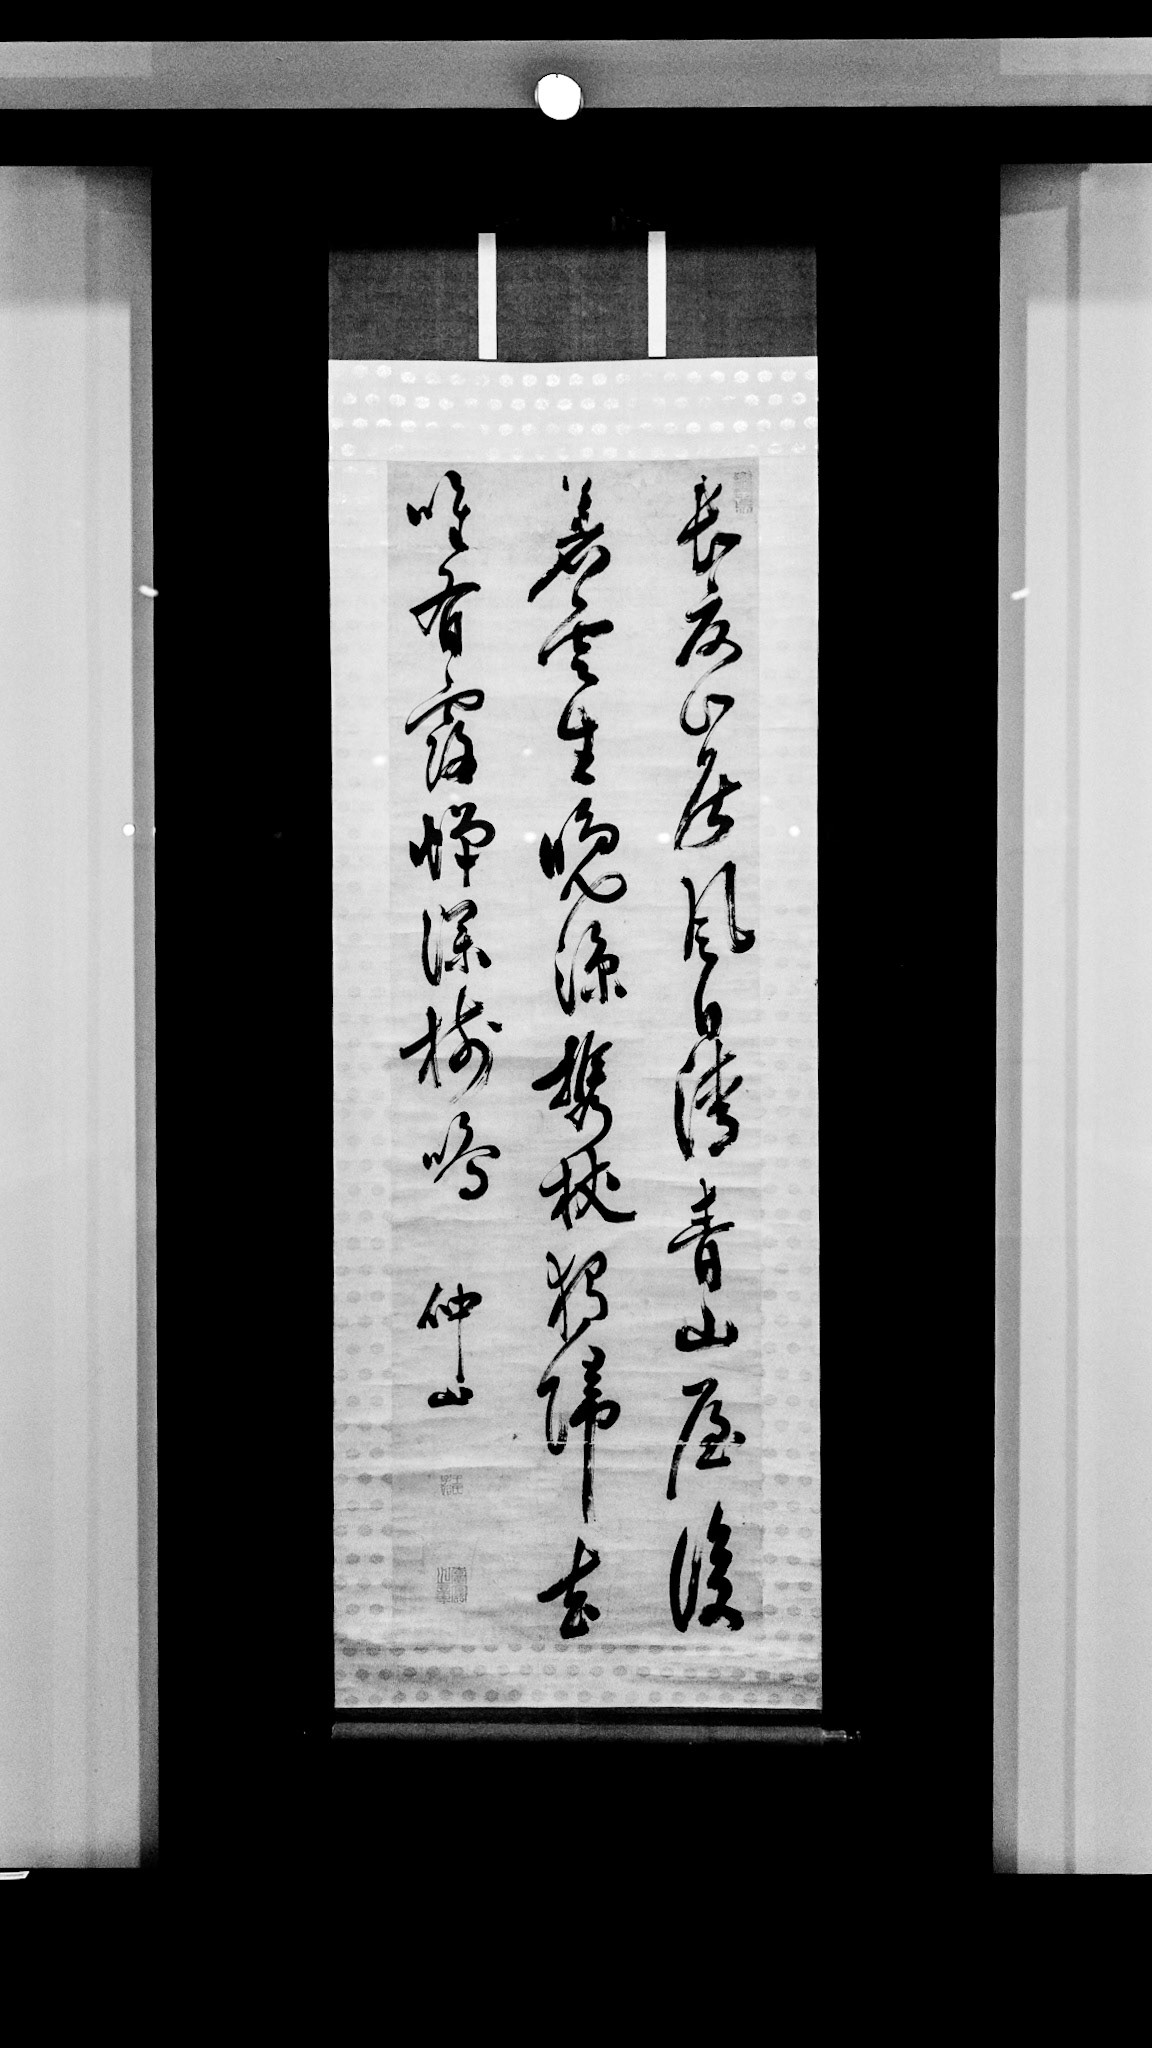 長夏山居風日清青山屋後
暮雲生晚涼攜杖獨歸去
唯有露蟬深樹鳴 仲山